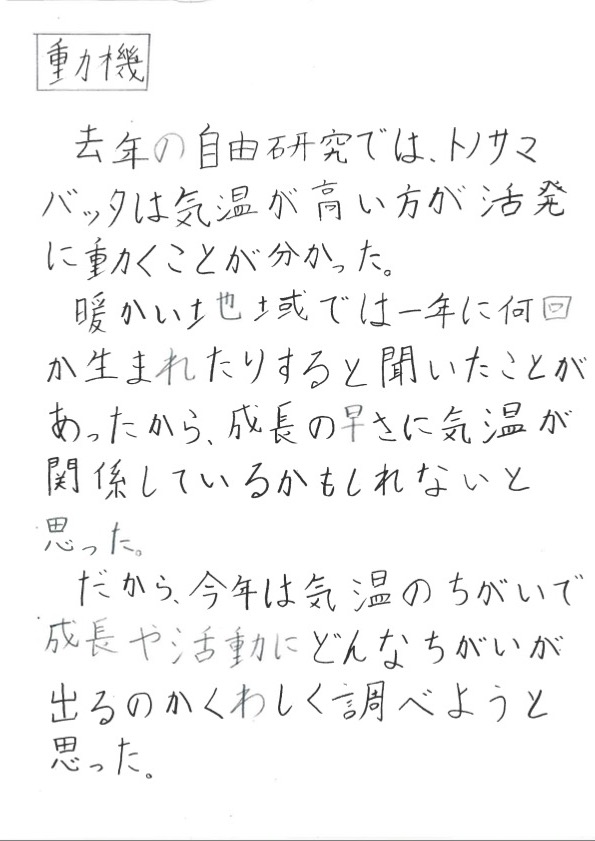 動機
去年の自由研究では、トノサマ
バッタは気温が高い方が活発
に動くことが分かった。
暖かい地域では一年に何回
か生まれたりすると聞いたことが
あったから、成長の早さに気温が
関係しているかもしれないと
思った。
だから、今年は気温のちがいで
成長や活動にどんなちがいが
出るのかくわしく調べようと
思った。